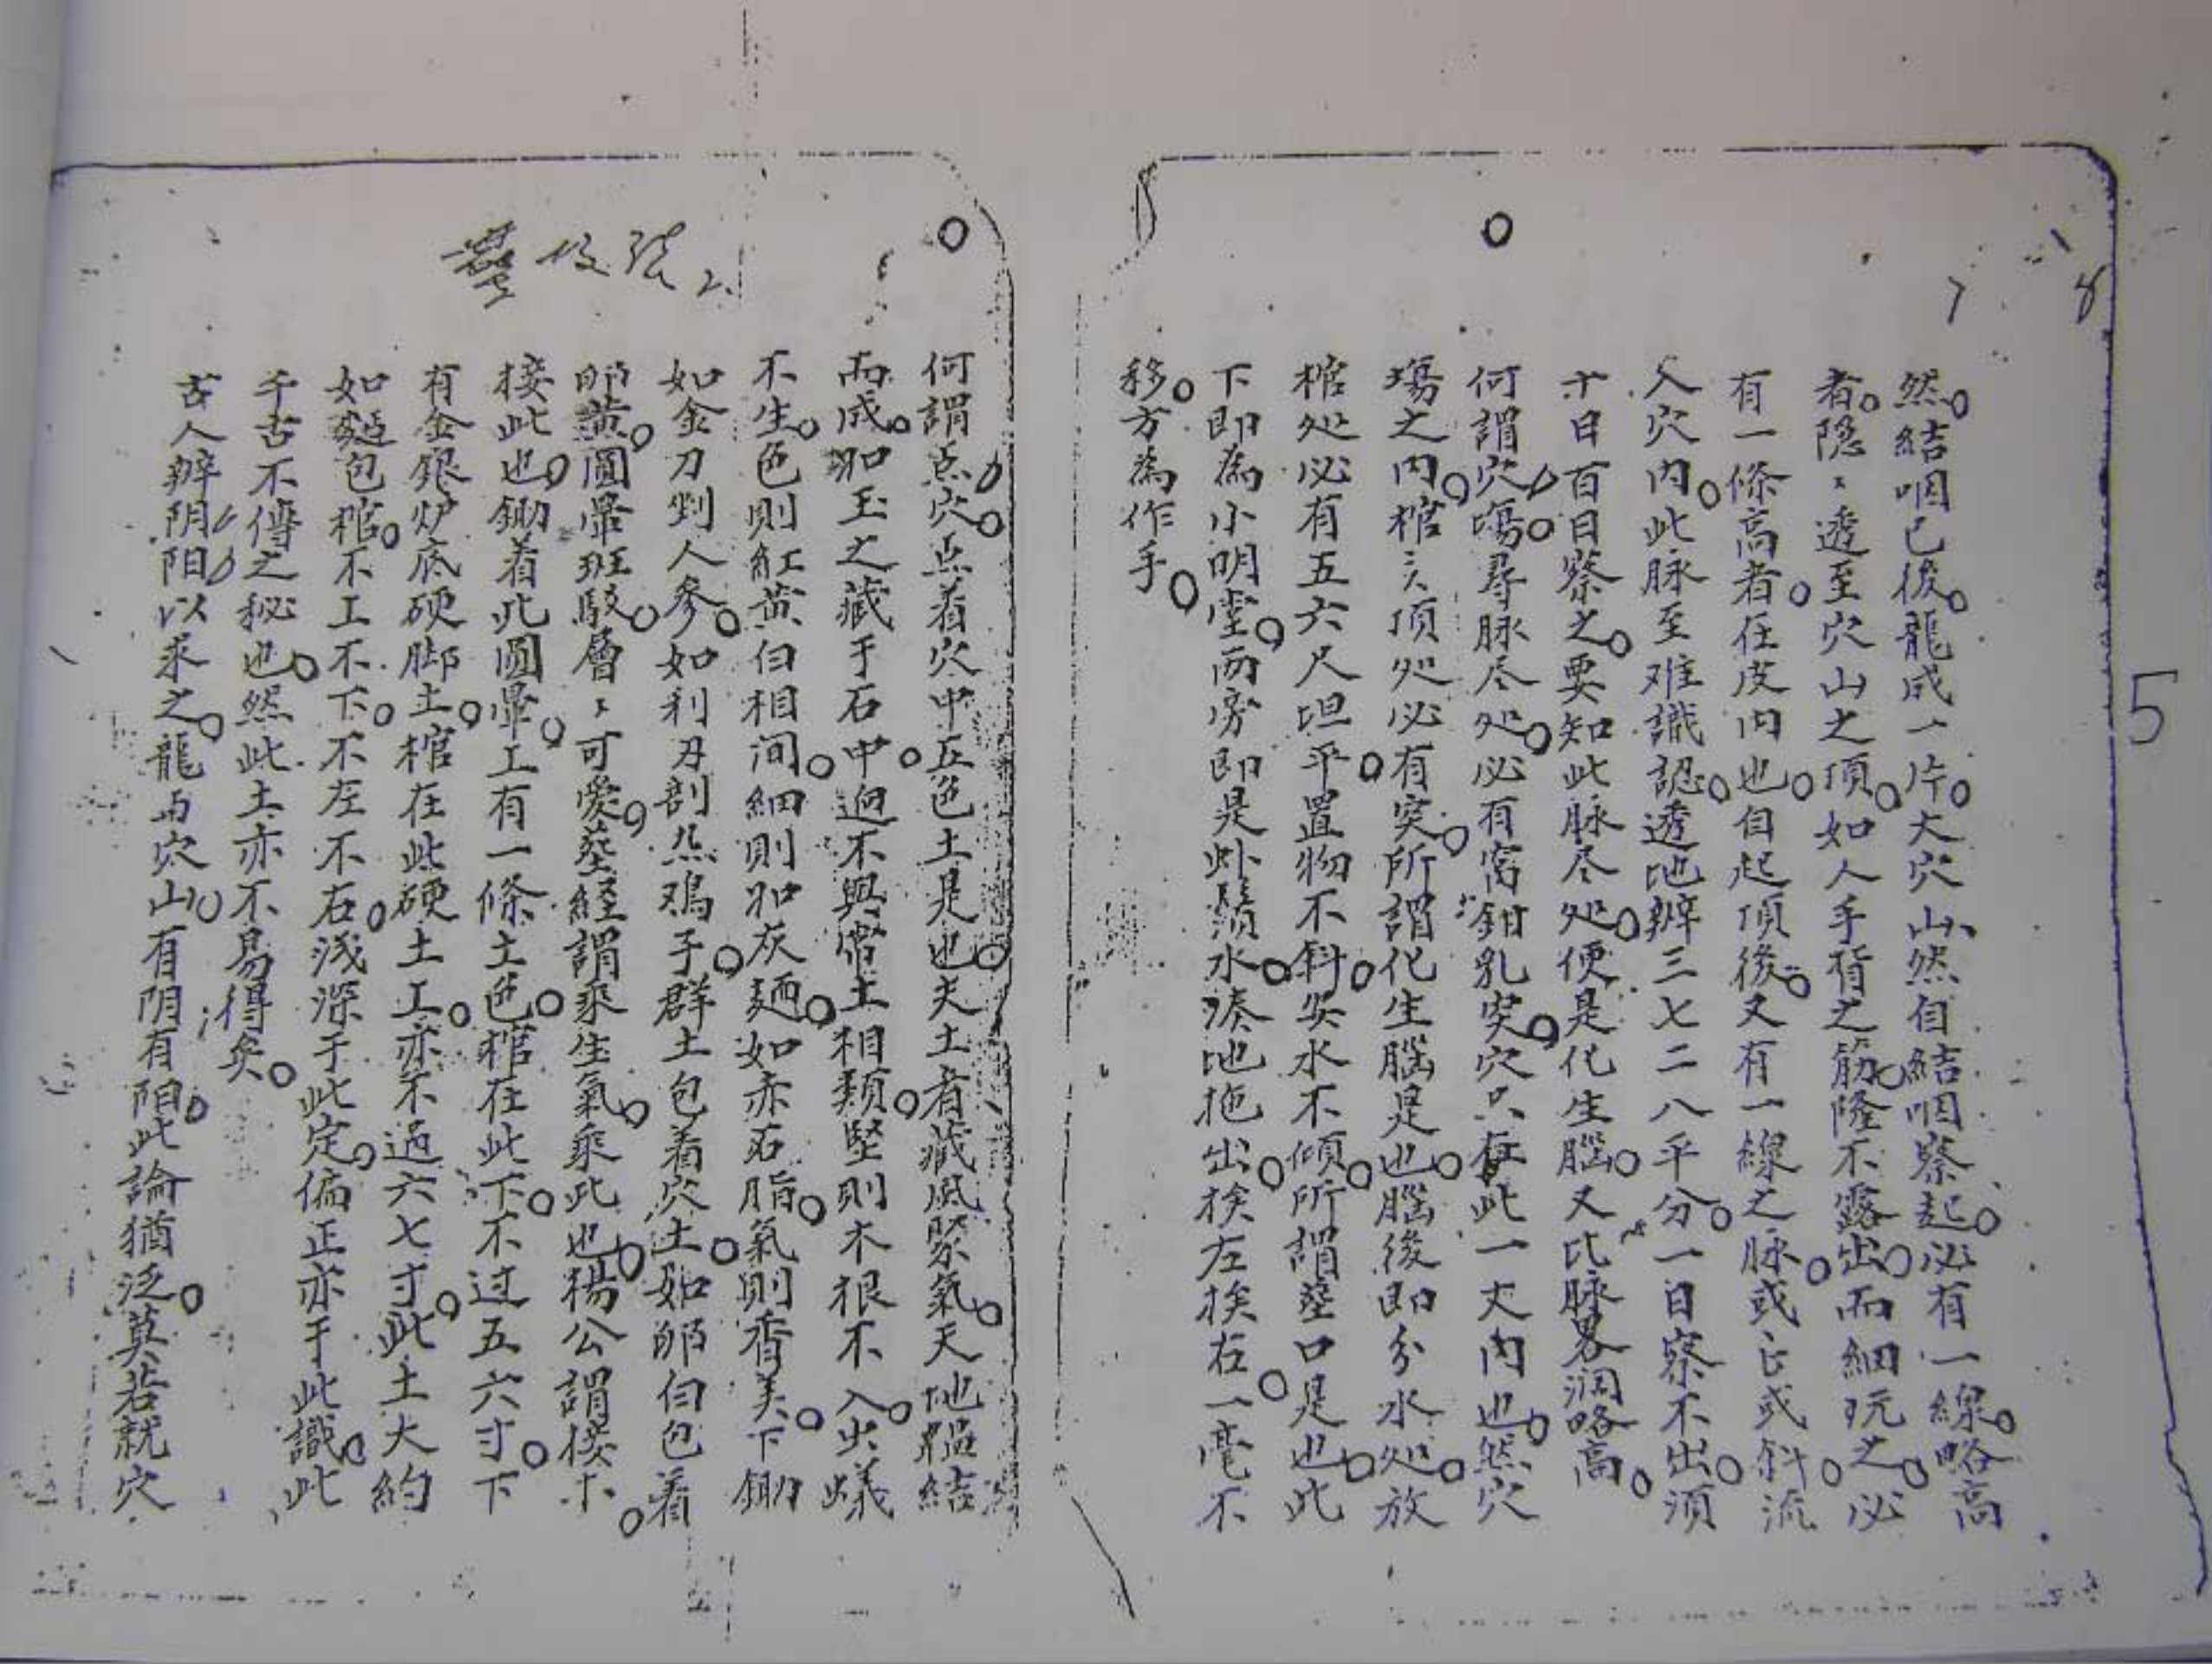 5
然結咽已後龍成一片大穴山然自結咽察起必有一線略高
者隐〻透至穴山之頂如人手背之筋隆不露出而细玩之必
有一條高者在皮内也自起頂後又有一線之脉或亡或斜流
入穴内此脉至难識認透地辨三七二八平分一日察不出須
十日百日察之要知此脉尽处便是化生腦又比脉畧濶略高
何謂穴塲尋脉尽处必有窩鉗乳突穴只在此一丈内也然穴
塲之内棺之頂处必有突所謂化生腦是也腦後即分水处放
棺处必有五六尺坦平置物不斜矣水不傾所謂塟口是也此
下即為小明堂两旁即是虾鬚水湊地拖出挨左挨右一毫不
移方為作手
何謂点穴点着穴中五色土是也夫土者藏風聚氣天地轀結
而成如玉之藏于石中迥不與常土相類堅則木根不入虫蟻
不生色則紅黄白相间細則如灰麺如赤石脂氣則香美下鋤
如金刀剉人参如利刀剖烝鸡子群土包着穴土如卵白包着
卵黄圓暈班駁層〻可愛塟経謂乘生氣乘此也楊公謂接木
接此也鋤着此圓暈工有一條土色棺在此下不过五六寸下
有金銀炉底硬脚土棺在此硬土工亦不過六七寸此土大約
如包棺不工不下不左不右浅深于此定偏正亦于此識此
千古不傳之秘也然此土亦不易得矣
古人辨阴阳以乘之龍与穴山有阴有阳此論猶泛莫若就穴